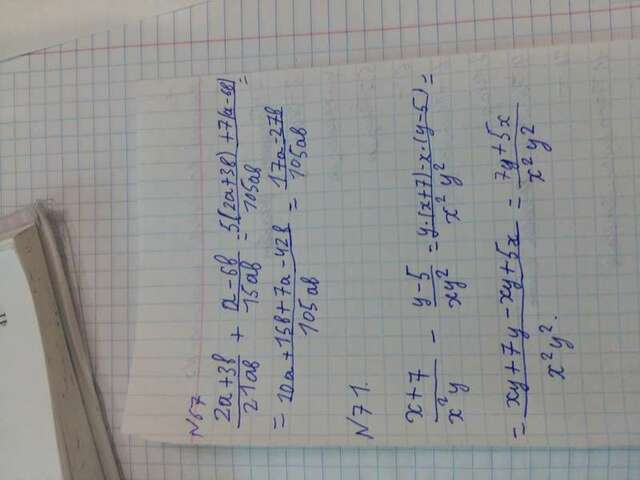 41
№67
(2а+3в)/(21ав) + (а-6в)/(15ав) = (5(2а+3в)+7(а-6в))/(105ав) =
= (10а+15в+7а-42в)/(105ав) = (17а-27в)/(105ав)
№71.
(x+7)/(x²y) - (y-5)/(xy²) = (y·(x+7)-x·(y-5))/(x²y²) =
= (xy+7y-xy+5x)/(x²y².) = (7y+5x)/(x²y²)